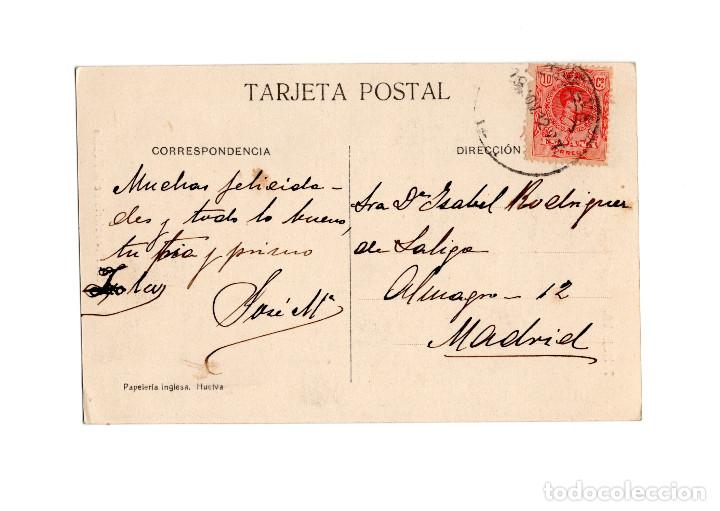 TARJETA POSTAL
10 Cs
CORREOS
CORRESPONDENCIA
DIRECCIÓN
Muchas felicida-
des y todo lo bueno,
tu tía y primo
José Mª
Sra Dª Isabel Rodriguez
de Saliga
Almagro - 12
Madrid
Papelería inglesa. Huelva
todocoleccion